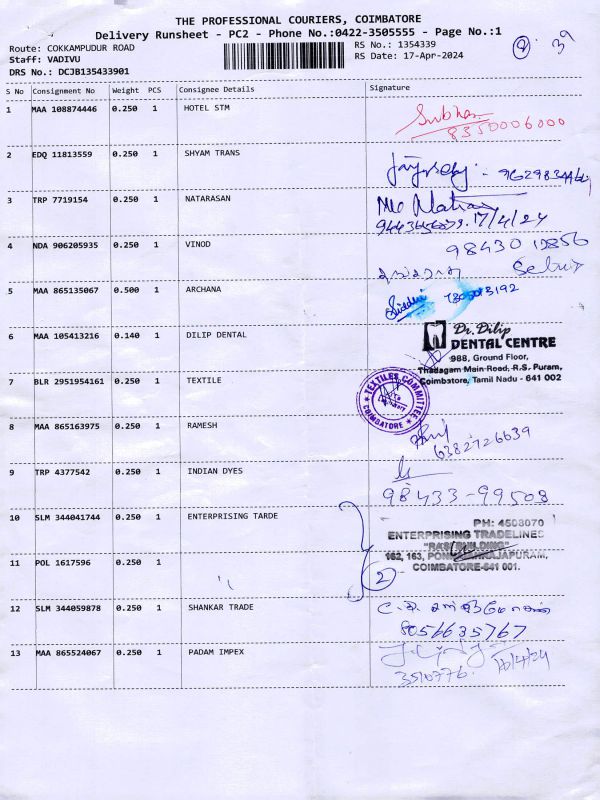 THE PROFESSIONAL COURIERS, COIMBATORE
Delivery Runsheet - PC2 - Phone No.:0422-3505555 - Page No.:1
Route: COKKAMPUDUR ROAD
Staff: VADIVU
DRS No.: DCJB135433901
RS No.: 1354339
RS Date: 17-Apr-2024
S No Consignment No Weight PCS Consignee Details Signature
1 MAA 108874446 0.250 1 HOTEL STM
8350006000
2 EDQ 11813559 0.250 1 SHYAM TRANS
3 TRP 7719154 0.250 1 NATARASAN
17/4/24
4 NDA 906205935 0.250 1 VINOD
5 MAA 865135067 0.500 1 ARCHANA
6 MAA 105413216 0.140 1 DILIP DENTAL
Dr. Dilip
DENTAL CENTRE
988, Ground Floor,
Thadagam Main Road, R.S. Puram,
Coimbatore, Tamil Nadu - 641 002
7 BLR 2951954161 0.250 1 TEXTILE
TEXTILES COMMITTEE
COIMBATORE
8 MAA 865163975 0.250 1 RAMESH
6382726639
9 TRP 4377542 0.250 1 INDIAN DYES
98433-99508
10 SLM 344041744 0.250 1 ENTERPRISING TARDE
PH: 4503070
ENTERPRISING TRADELINES
COIMBATORE-641 001.
11 POL 1617596 0.250 1
2
12 SLM 344059878 0.250 1 SHANKAR TRADE
8056635767
13 MAA 865524067 0.250 1 PADAM IMPEX
3510776